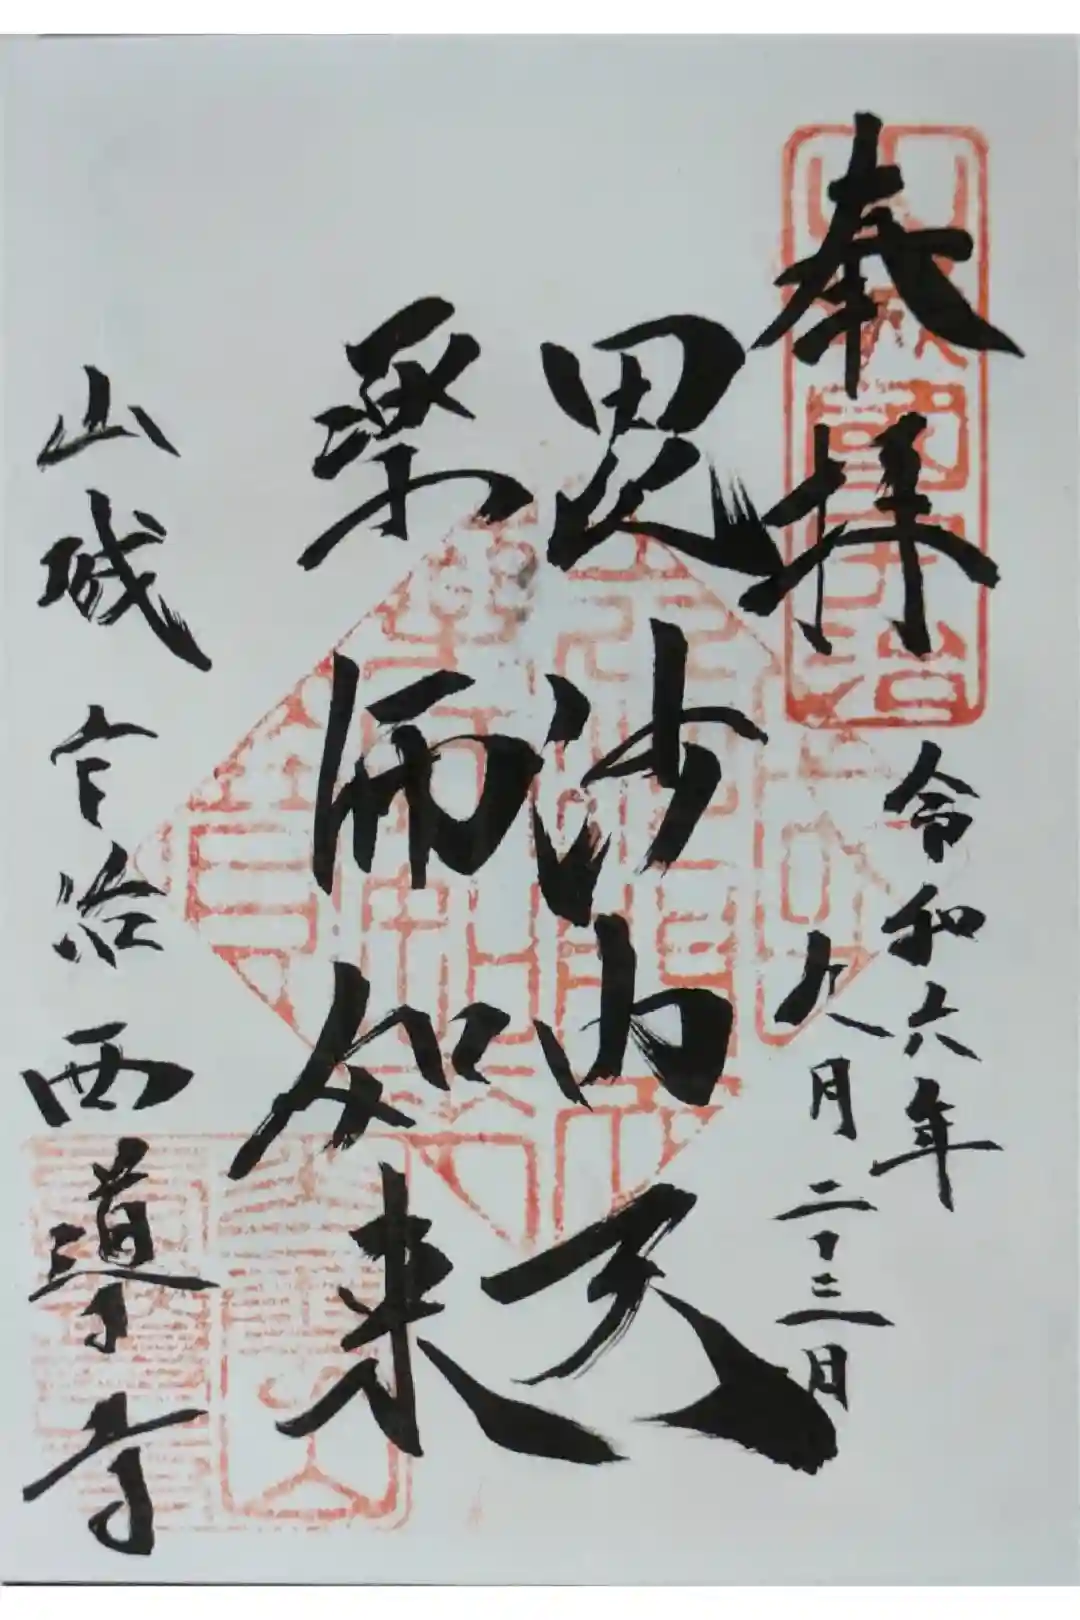 奉拝
山城國宇治
令和六年
九月二十三日
毘沙門天
薬師如来
山城 宇治 西導寺